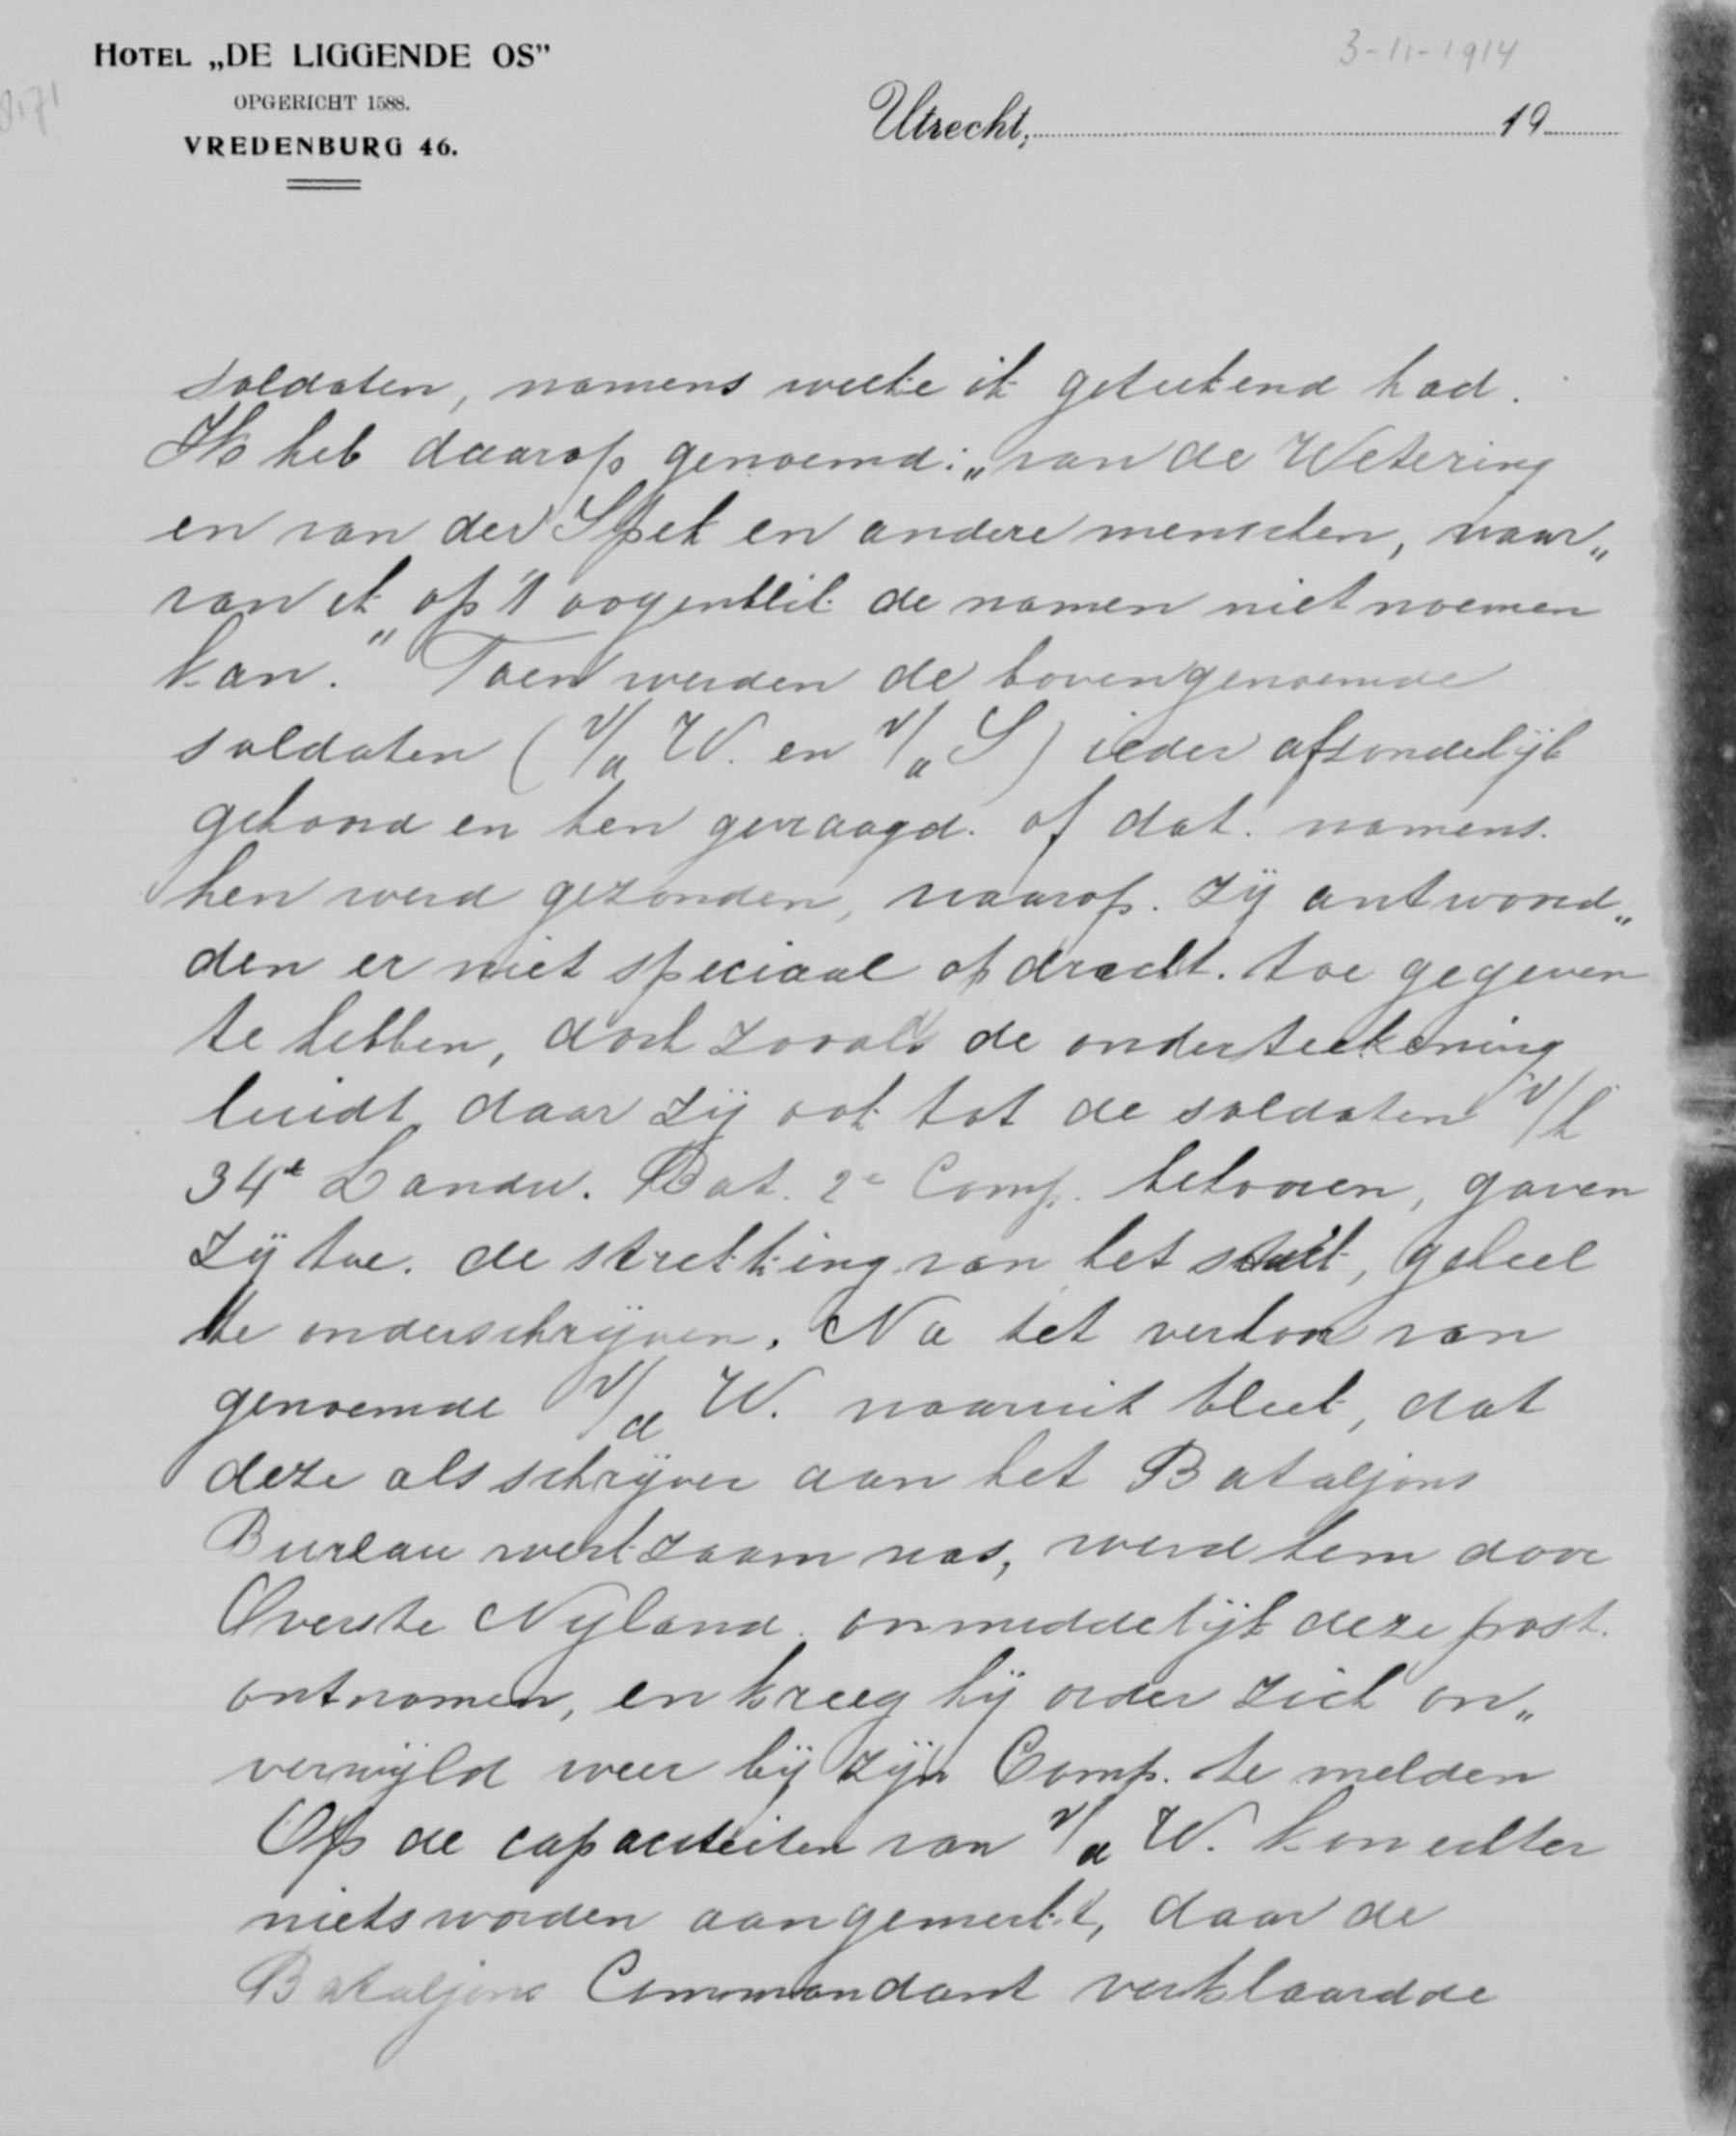 HOTEL „DE LIGGENDE OS"
OPGERICHT 1588.
VREDENBURG 46.
3-11-1914
Utrecht, 19
soldaten, namens welke ik geteekend had.
Ik heb daarop genoemd: „van de Wetering
en van der Spek en andere menschen, waar„
van ik op 't oogenblik de namen niet noemen
kan." Toen werden de bovengenoemde
soldaten (v/d W. en v/d S) ieder afzonderlijk
gehoord en hen gevraagd. of dat. namens.
hen werd gezonden, waarop. zij antwoord„
den er niet speciaal opdracht. toe gegeven
te hebben, doch zooals de onderteekening
luidt, daar zij ook tot de soldaten v/h
34e Landw. Bat. 2e Comp. behooren, gaven
zij toe. de strekking van het stuk, geheel
te onderschrijven. Na het verhoor van
genoemde v/d W. waaruit bleek, dat
deze als schrijver aan het Bataljons
Bureau werkzaam was, werd hem door
Overste Nyland. onmiddelijk deze post.
ontnomen, en kreeg hij order zich on„
verwijld weer bij zijn Comp. te melden
Op de capaciteiten van v/d W. kon echter
niets worden aangemerkt, daar de
Bataljons Commandant verklaardde